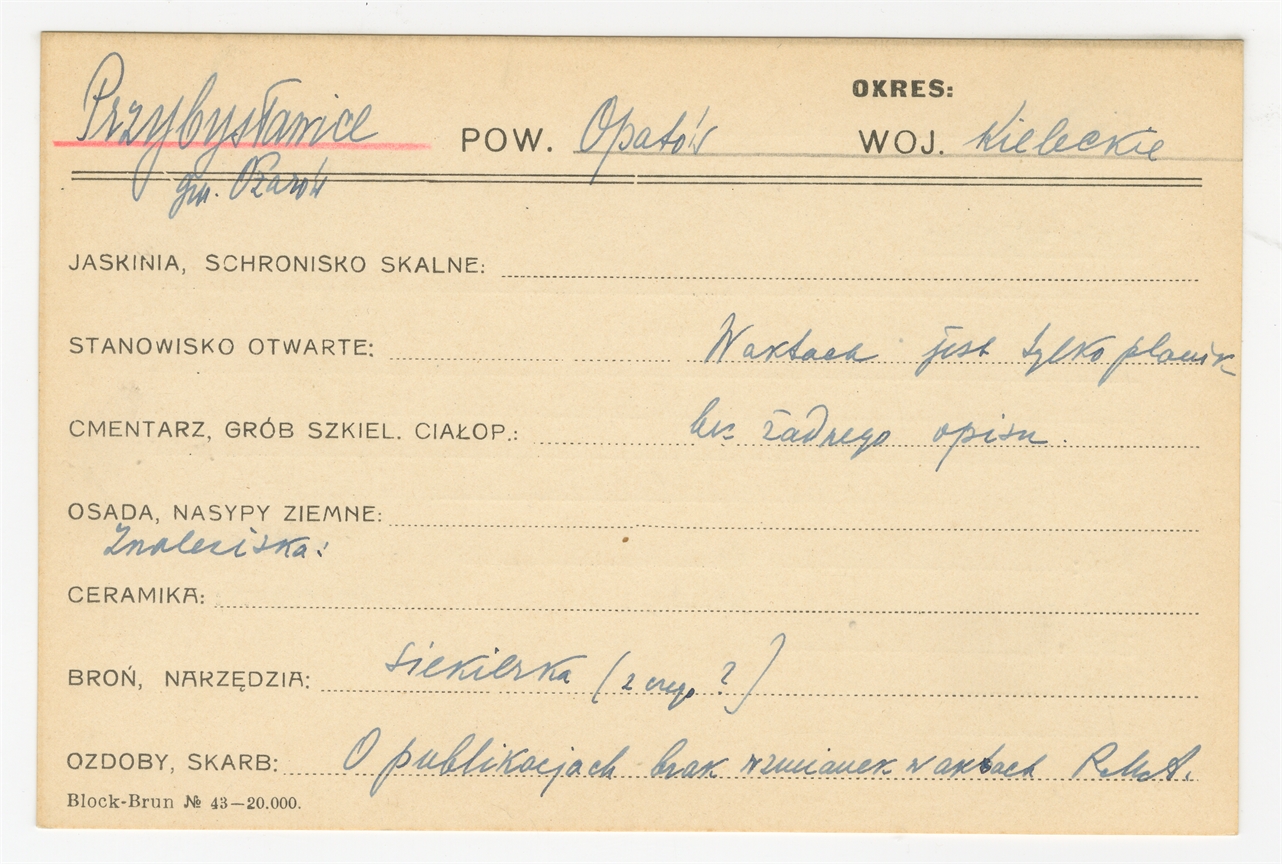 OKRES:
Przybysławice POW. Opatów WOJ. Kieleckie
gm. Ożarów
JASKINIA, SCHRONISKO SKALNE:
STANOWISKO OTWARTE: W aktach jest tylko planik
CMENTARZ, GRÓB SZKIEL. CIAŁOP.: bez żadnego opisu.
OSADA, NASYPY ZIEMNE:
Znaleziska:
CERAMIKA:
BROŃ, NARZĘDZIA: siekierka (z czego?)
OZDOBY, SKARB: O publikacjach brak wzmianek w aktach P.M.A.
Block-Brun № 43—20.000.